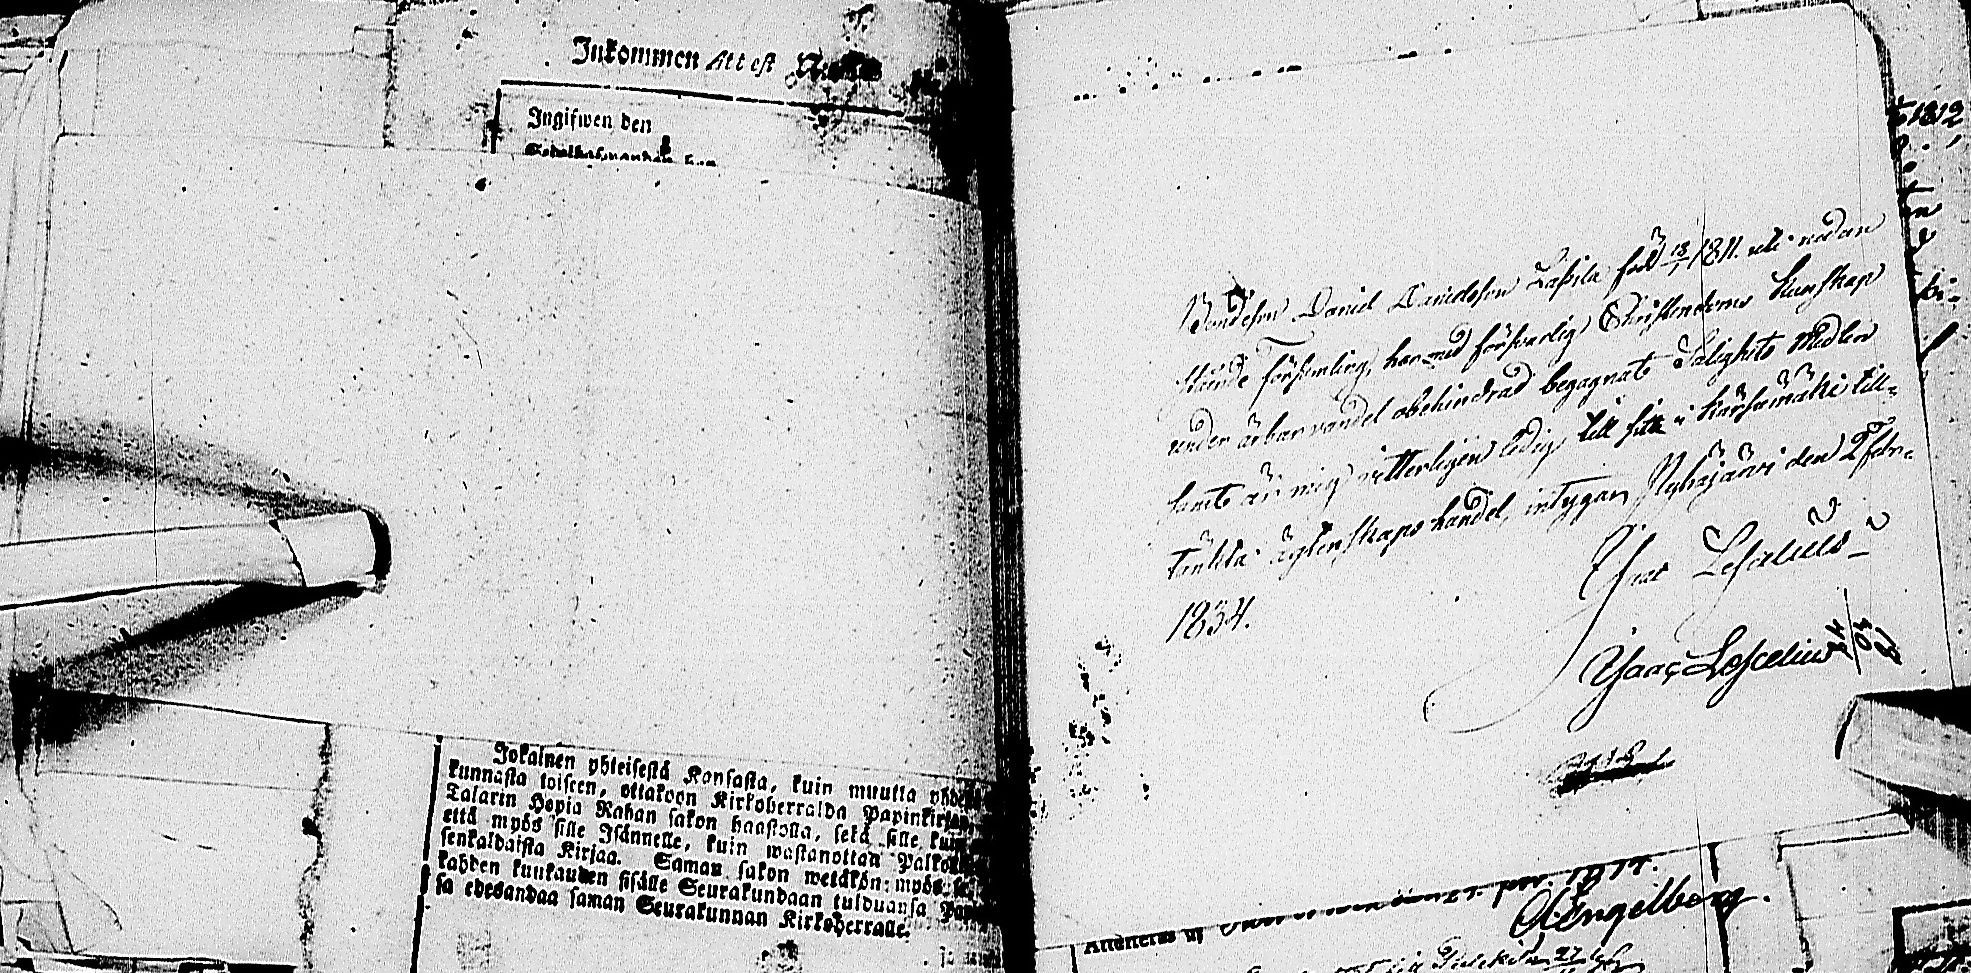 Inkommen Attest
Ingifwen den
Jokainen yhteisestä Kansasta, kuin muutta yhdestä
kunnasta toiseen, ottakoon Kirkoherralda Papinkirjan,
Talarin Hopia Rahan sakon haastolla, sekä sille kuin
että myös sille Isännelle, kuin wastanottan Palko
senkaldaista Kirjaa. Saman sakon wetäkön: myös se
kahden kuukauden sisälle Seurakundaan tulduansa Pap
sa edesandaa saman Seurakunnan Kirkoherralle.
1812
Bondeson Daniel Danielsson Lassila född 13/1 1811. uti nedan
stående församling, har med försvarlig Christendoms kunskap
under ärbar vandel obehindrad begagnat Salighets Medlen
samt är mig vetterligen ledig till sitt i Kärsämäki till-
tänkta ägtenskaps handel, intygar, Pyhäjärvi den 2 febr.
1834.
Isac Lescelius
Isaac Lescelius
Engelberg.